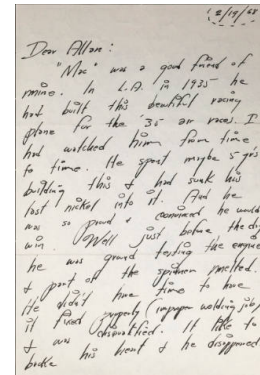 2/19/68
Dear Allare:
"Mac" was a good friend of
mine. In L.A. in 1935 he
had built this beautiful racing
plane for the '35 air races. I
had watched him from time
to time. He spent maybe 5 yrs
building this & had sunk his
last nickel into it. And he
was so proud & convinced he would
win. Well just before the
he was ground testing the engine
& part of the spinner melted.
He didn't have time to have
it fixed properly (improper welding job)
& was disqualified. It like to
broke his heart & he disappeared